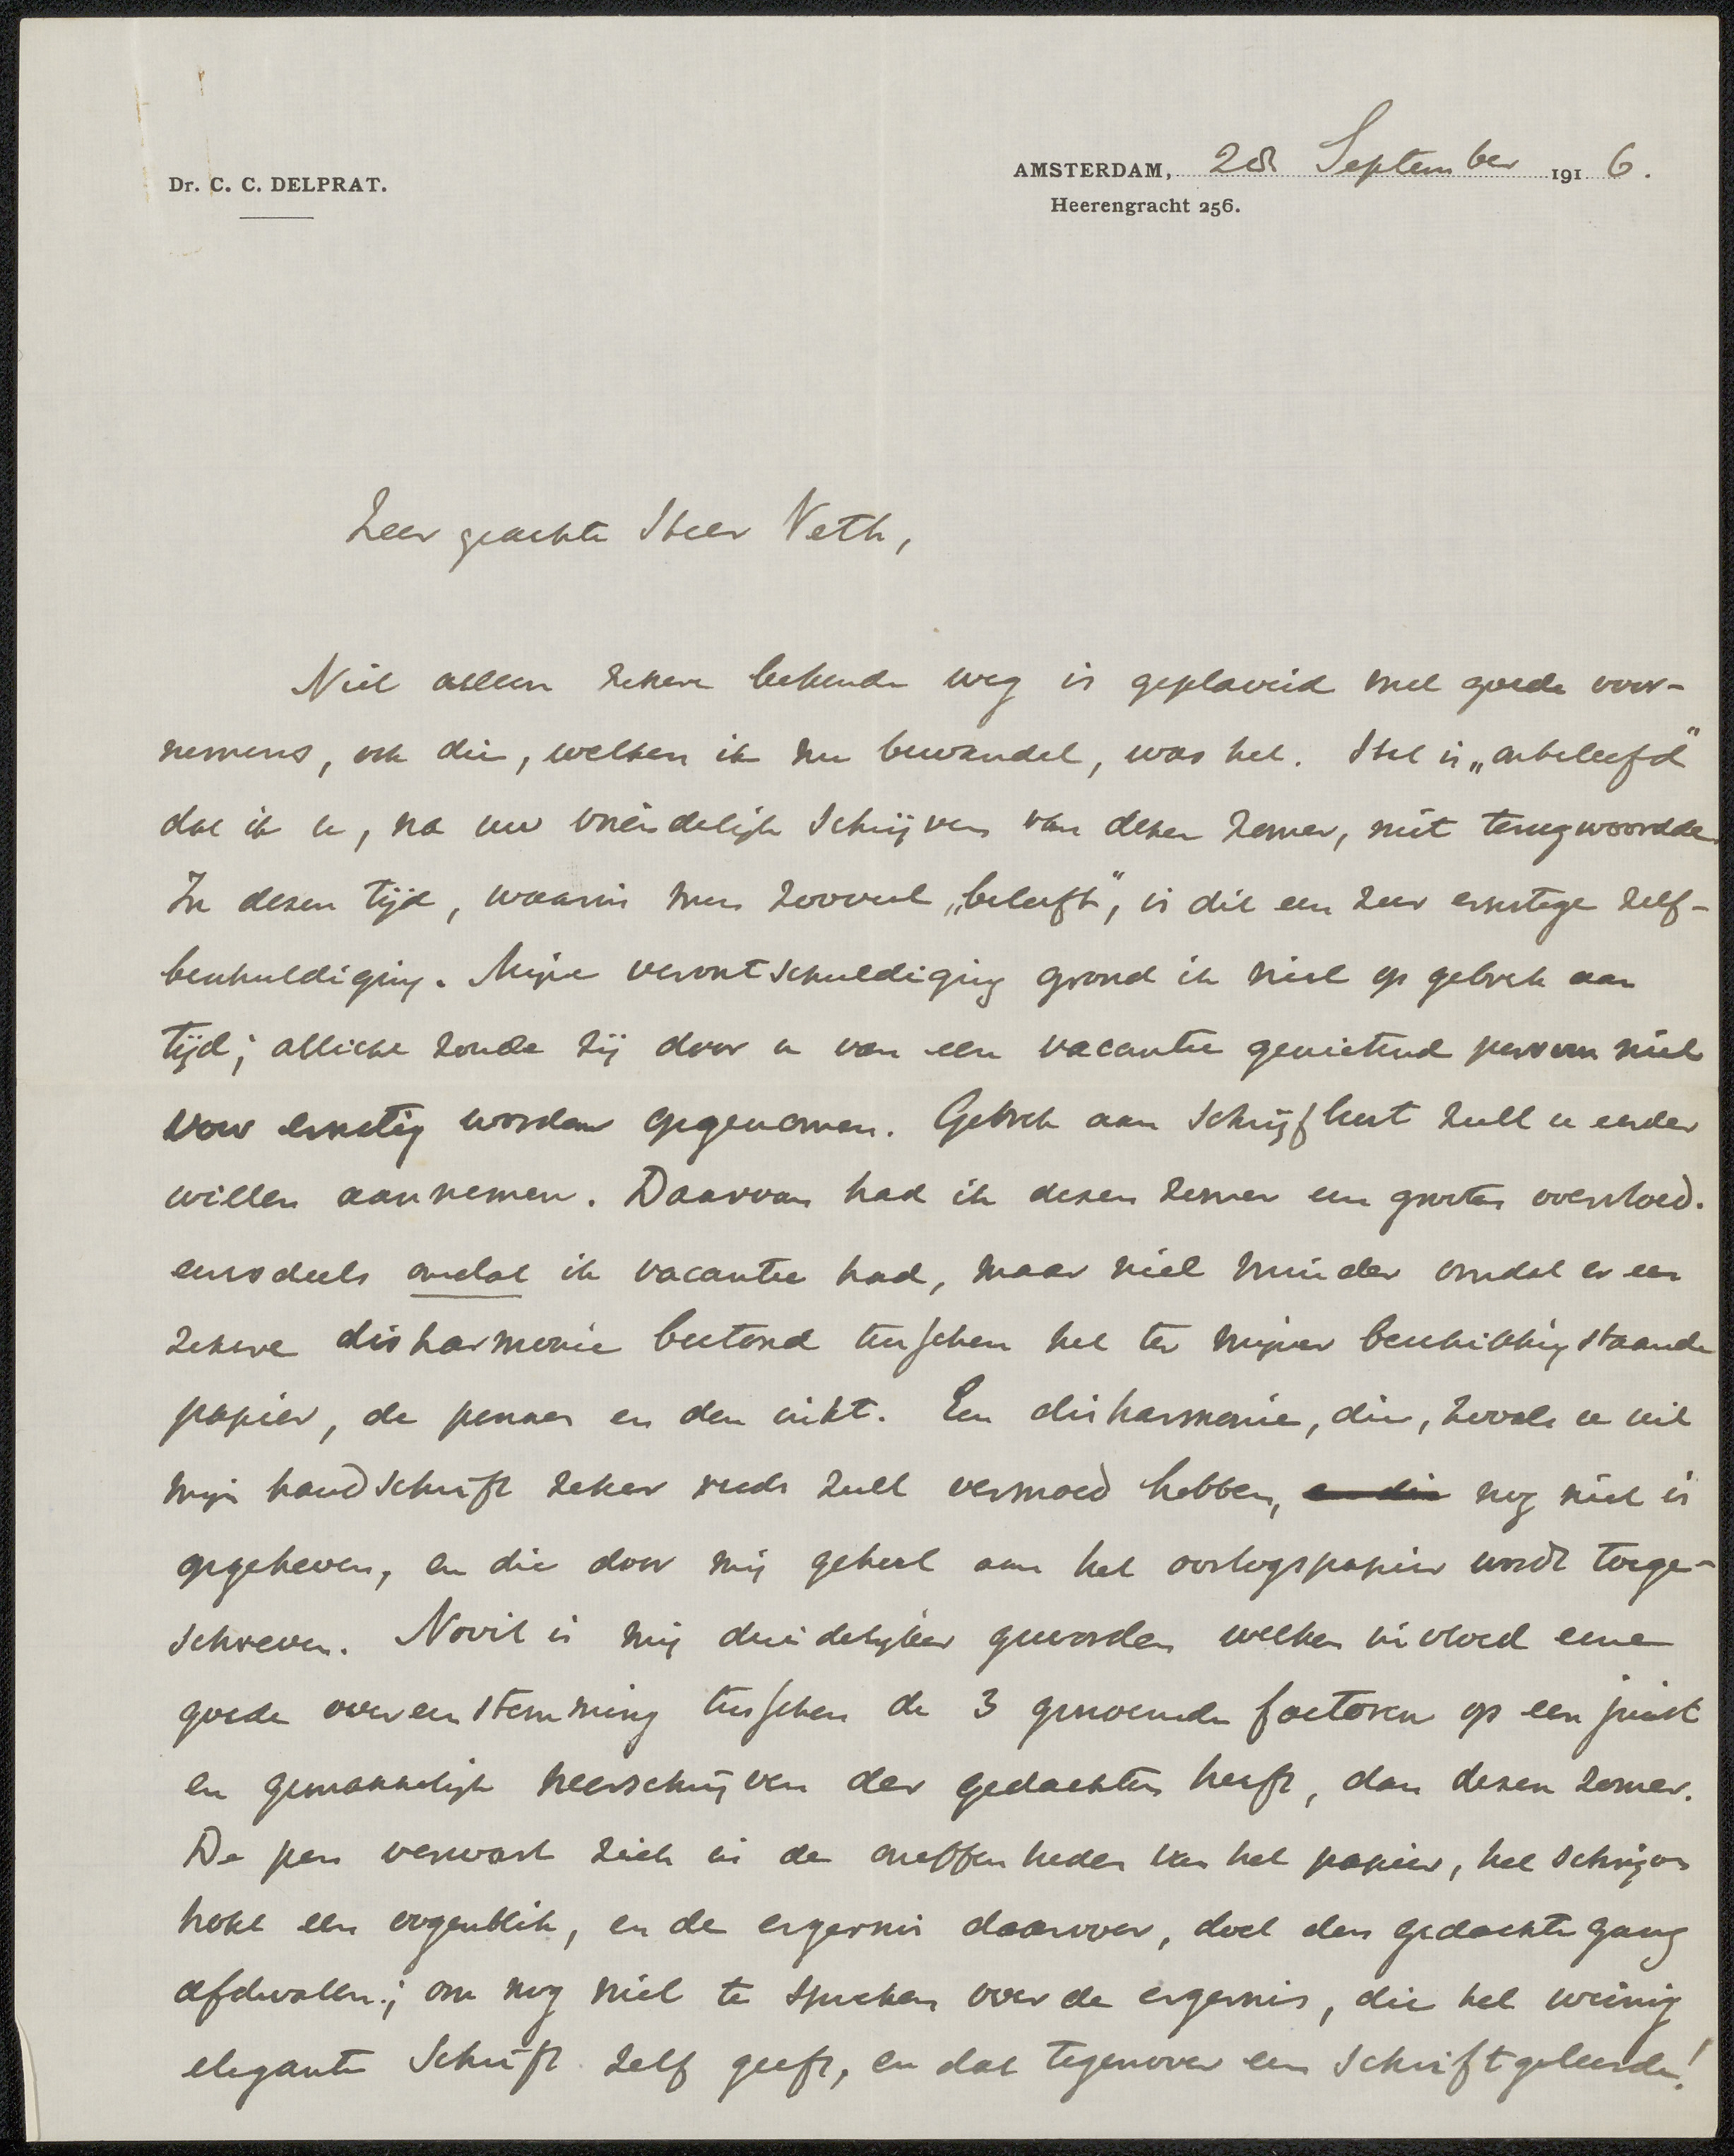 Dr. C. C. DELPRAT.
AMSTERDAM, 28 September 1916.
Heerengracht 256.
Zeer geachte Heer Veth,
Niet alleen zekere bekende weg is geplaveid met goede voor-
nemens, ook die, welken ik nu bewandel, was het. Het is „onbeleefd"
dat ik u, na uw vriendelijk schrijven van dezen zomer, niet terugwoordde.
In dezen tijd, waarin men zooveel „beleeft", is dit een zeer ernstige zelf-
beschuldiging. Mijne verontschuldiging grond ik niet op gebrek aan
tijd; allicht zoude zij door u van een vacantie genietend persoon niet
voor ernstig worden opgenomen. Gebrek aan schrijflust zult u eerder
willen aannemen. Daarvan had ik dezen zomer een grooten overvloed.
eensdeels omdat ik vacantie had, maar niet minder omdat er een
zekere disharmonie bestond tusschen het ter mijner beschikking staande
papier, de pennen en den inkt. Een disharmonie, die, zooals u uit
mijn handschrift zeker reeds zult vermoed hebben, en die nog niet is
opgeheven, en die door mij geheel aan het oorlogspapier wordt toege-
schreven. Nooit is mij duidelijker geworden welken invloed eene
goede overeenstemming tusschen de 3 genoemde factoren op een juist
en gemakkelijk neerschrijven der gedachten heeft, dan dezen zomer.
De pen verwart zich in de oneffenheden van het papier, het schrijven
hokt een oogenblik, en de ergernis daarover, doet den gedachtegang
afdwalen; om nog niet te spreken over de ergernis, die het weinig
elegante schrift zelf geeft, en dat tegenover een schriftgeleerde!